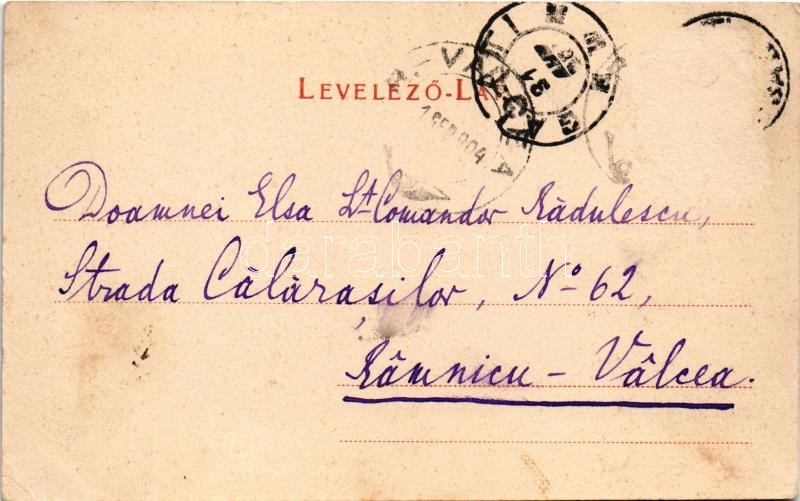 LEVELEZŐ-LA
1 SEP 904
Doamnei Elsa Lt. Comandor Rădulescu,
darabanth
Strada Călărașilor, No 62,
Râmnicu - Vâlcea.